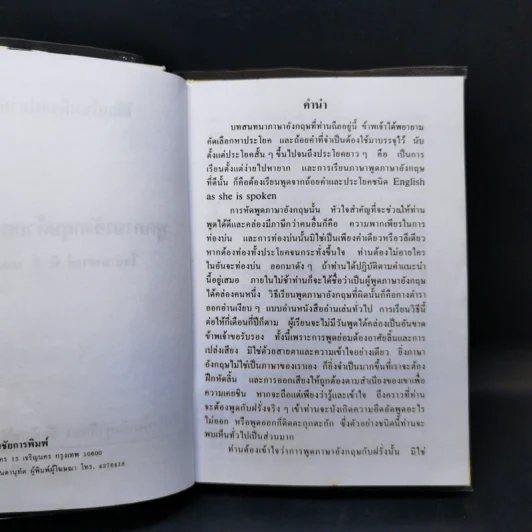 ชัยการพิมพ์
คำนำ
บทสนทนาภาษาอังกฤษที่ท่านถืออยู่นี้ ข้าพเจ้าได้พยายาม
คัดเลือกหาประโยค และถ้อยคำที่จำเป็นต้องใช้มาบรรจุไว้ นับ
ตั้งแต่ประโยคสั้น ๆ ขึ้นไปจนถึงประโยคยาว ๆ คือ เป็นการ
เรียนตั้งแต่ง่ายไปหายาก และการเรียนภาษาพูดภาษาอังกฤษ
ที่ดีนั้น ก็คือต้องเรียนพูดจากถ้อยคำและประโยคชนิด English
as she is spoken
การหัดพูดภาษาอังกฤษนั้น หัวใจสำคัญที่จะช่วยให้ท่าน
พูดได้ดีและคล่องมีภาษีกว่าคนอื่นก็คือ ความพากเพียรในการ
ท่องบ่น และการท่องบ่นนั้นมิใช่เป็นเพียงคำเดียวหรือวลีเดียว
หากต้องท่องทั้งประโยคจนกระทั่งขึ้นใจ ท่านต้องไม่อายใคร
ในอันจะท่องบ่น ออกมาดัง ๆ ถ้าท่านได้ปฏิบัติตามคำแนะนำ
นี้อยู่เสมอ ภายในไม่ช้าท่านก็จะได้ชื่อว่าเป็นผู้พูดภาษาอังกฤษ
ได้คล่องคนหนึ่ง วิธีเรียนพูดภาษาอังกฤษที่ผิดนั้นก็คือกางตำรา
ออกอ่านเงียบ ๆ แบบอ่านหนังสืออ่านเล่นทั่วไป การเรียนวิธีนี้
ต่อให้กี่เดือนกี่ปีก็ตาม ผู้เรียนจะไม่มีวันพูดได้คล่องเป็นอันขาด
ข้าพเจ้าขอรับรอง ทั้งนี้เพราะการพูดย่อมต้องอาศัยลิ้นและการ
เปล่งเสียง มิใช่ด้วยสายตาและความเข้าใจอย่างเดียว ยิ่งภาษา
อังกฤษไม่ใช่เป็นภาษาของเราเอง ก็ยิ่งจำเป็นมากขึ้นที่เราจะต้อง
ฝึกหัดลิ้น และการออกเสียงให้ถูกต้องตามสำเนียงของเขาเพื่อ
ความเคยชิน หากจะถือแต่เพียงว่ารู้และเข้าใจ ถึงคราวที่ท่าน
จะต้องพูดกับฝรั่งจริง ๆ เข้าท่านจะบังเกิดความอึดอัดพูดอะไร
ไม่ออก หรือพูดออกก็ติดตะกุกตะกัก ซึ่งตัวอย่างชนิดนี้ท่านจะ
พบเห็นทั่วไปเป็นส่วนมาก
ท่านต้องเข้าใจว่าการพูดภาษาอังกฤษกับฝรั่งนั้น มิใช่